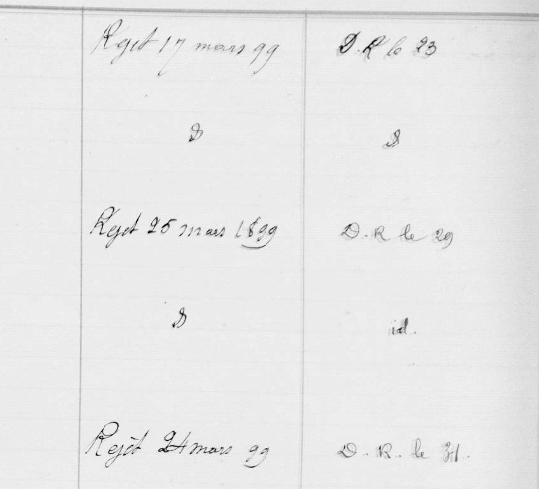 Rejet 17 mars 99 D. R le 23
Rejet 25 mars 1899 D. R le 29
id.
Rejet 24 mars 99 D. R. le 31.